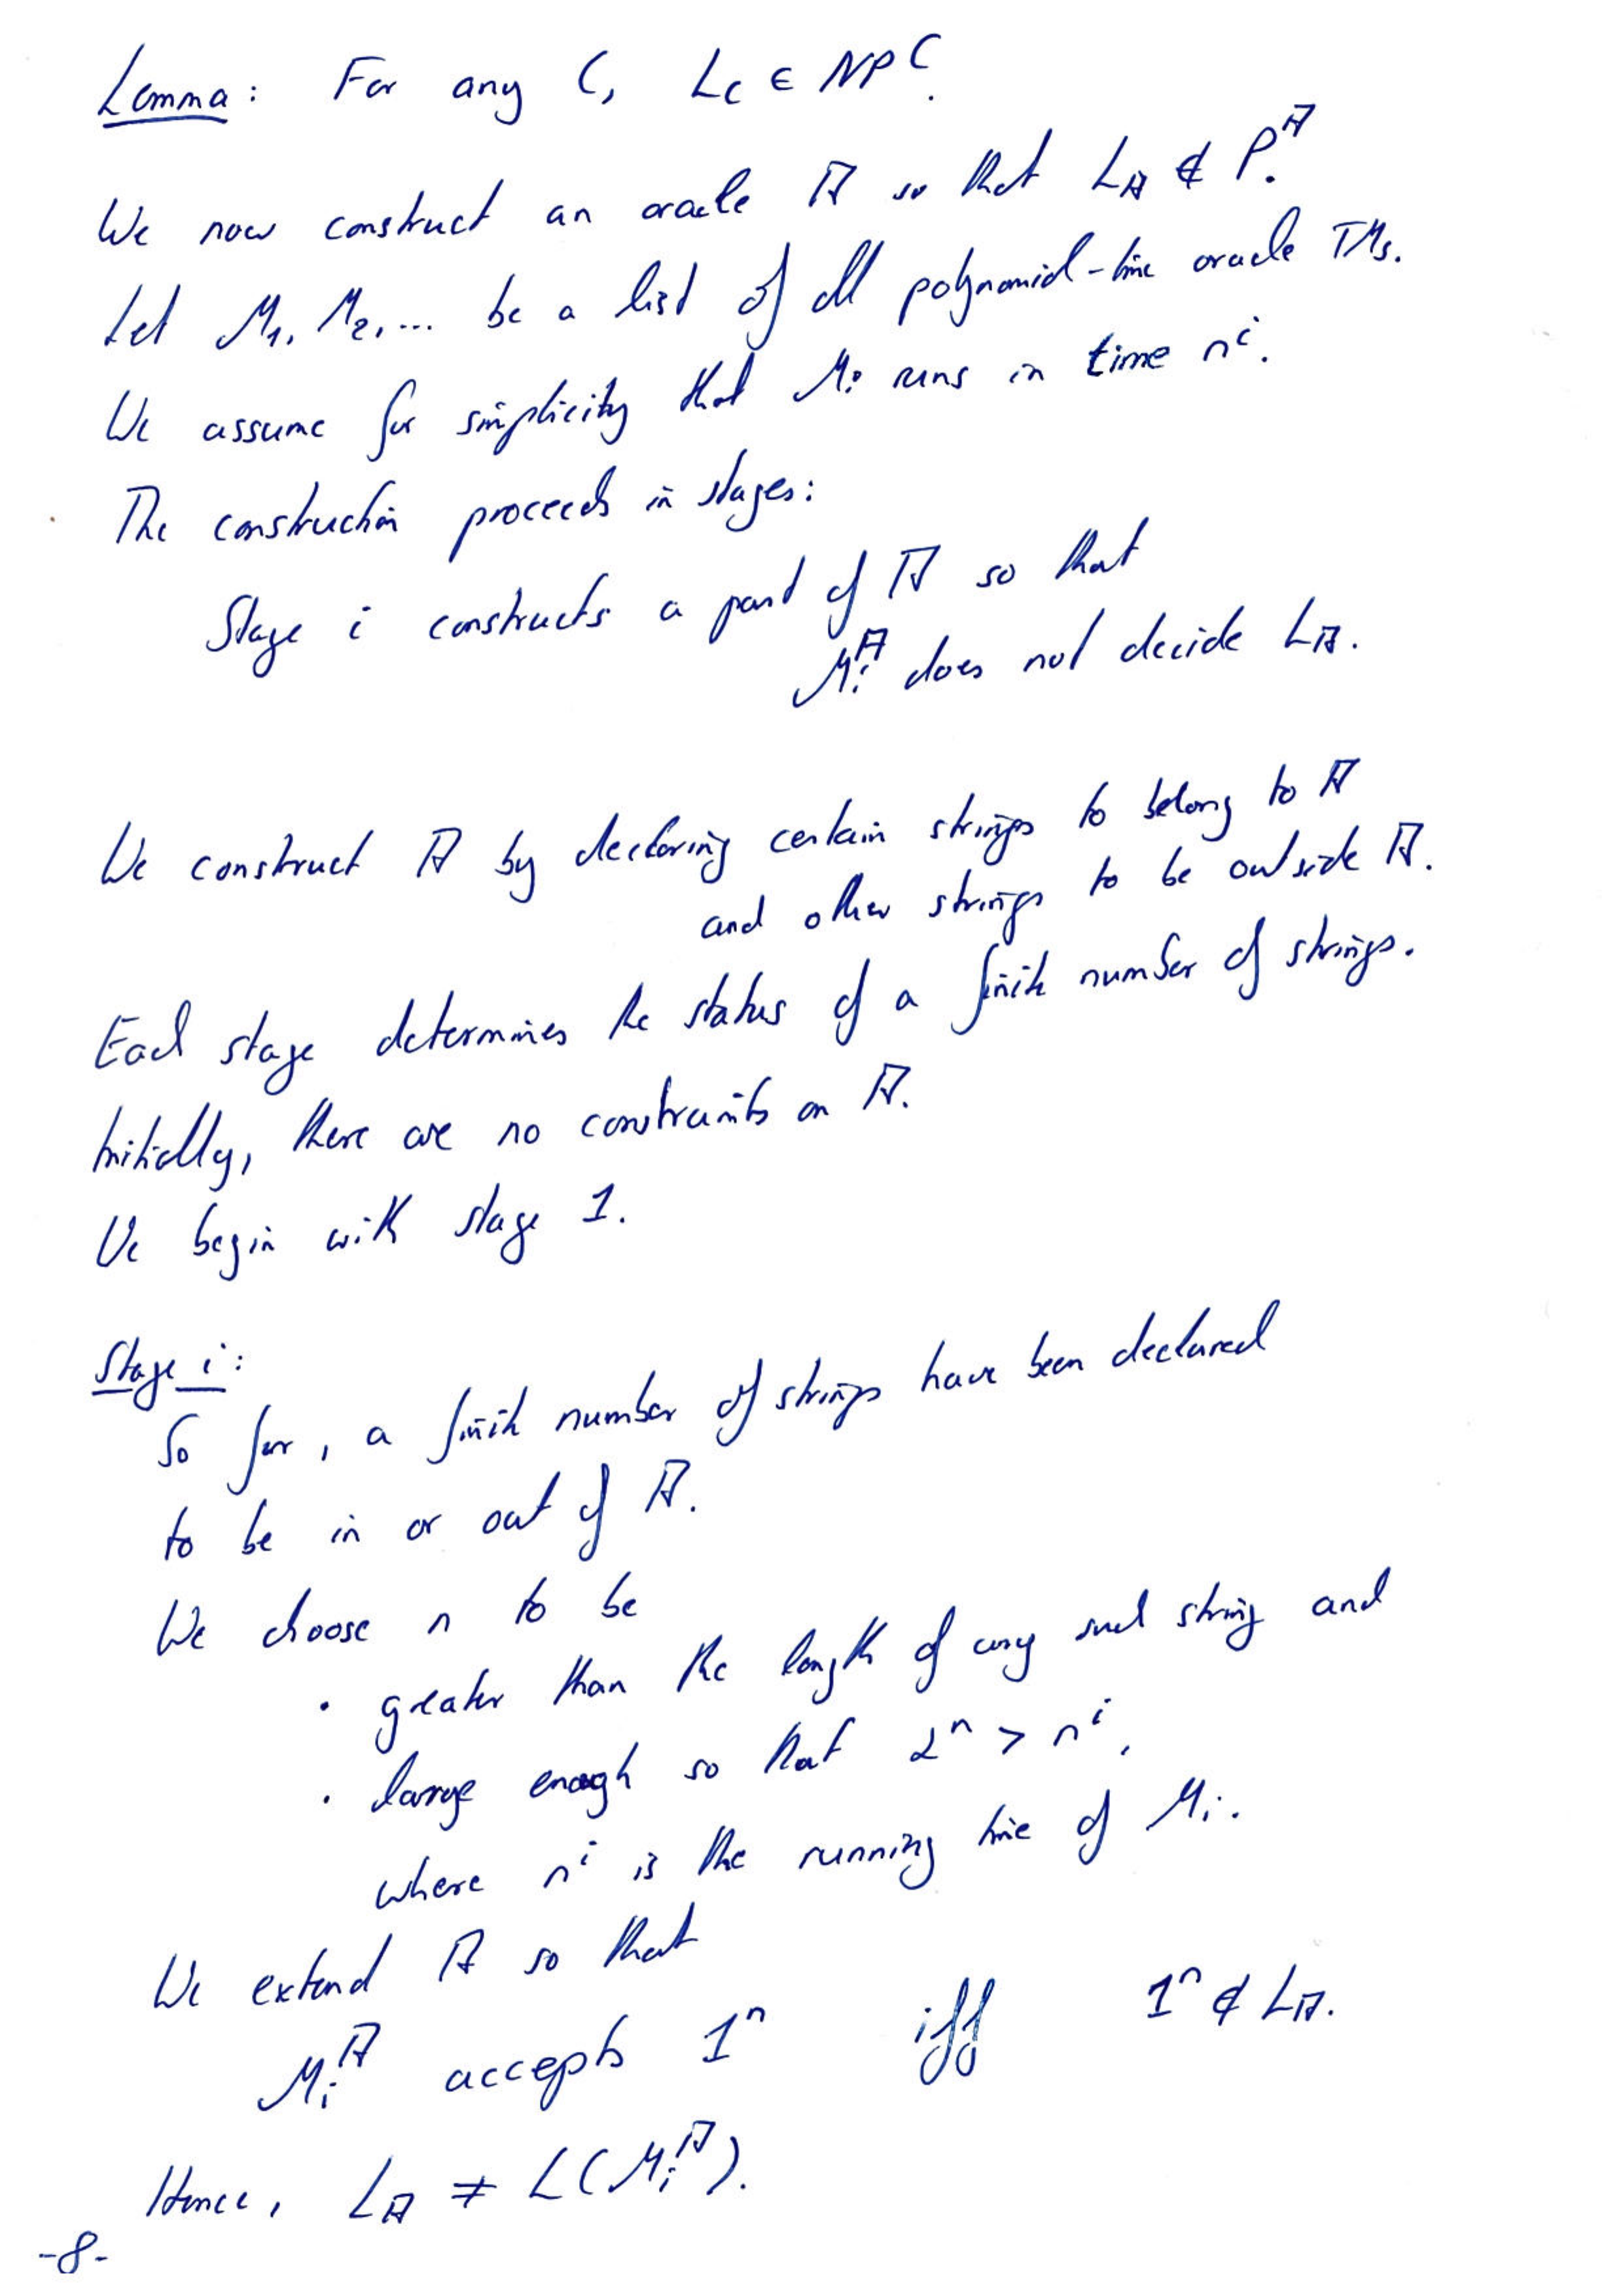 Lemma: For any C, L_C ∈ NP^C.
We now construct an oracle A so that L_A ∉ P^A.
Let M_1, M_2, ... be a list of all polynomial-time oracle TMs.
We assume for simplicity that M_i runs in time n^i.
The construction proceeds in stages:
Stage i constructs a part of A so that
M_i^A does not decide L_A.
We construct A by declaring certain strings to belong to A
and other strings to be outside A.
Each stage determines the status of a finite number of strings.
Initially, there are no constraints on A.
We begin with stage 1.
Stage i:
So far, a finite number of strings have been declared
to be in or out of A.
We choose n to be
· greater than the length of any such string and
· large enough so that 2^n > n^i,
where n^i is the running time of M_i.
We extend A so that
M_i^A accepts 1^n iff 1^n ∉ L_A.
Hence, L_A ≠ L(M_i^A).
-8-